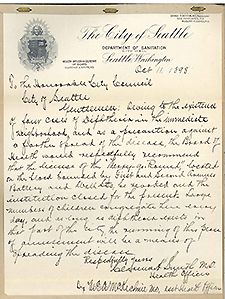 The City of Seattle
DEPARTMENT OF SANITATION
Seattle, Washington
Oct 11, 1898
To the Honorable City Council
City of Seattle
Gentlemen: Owing to the existence
of four cases of Diphtheria in the immediate
neighborhood, and as a precaution against
a further spread of the disease, the Board of
Health would respectfully recommend
that the license of the Merry-go-Round, located
on the block bounded by First and Second Avenues
Battery and Wall Sts, be revoked and the
institution closed for the present. Large
numbers of children congregate there each
day, and so long as diphtheria exists in
that part of the City the running of this place
of amusement will be a means of
spreading the disease.
Respectfully yours
M.D.
Health Officer
by